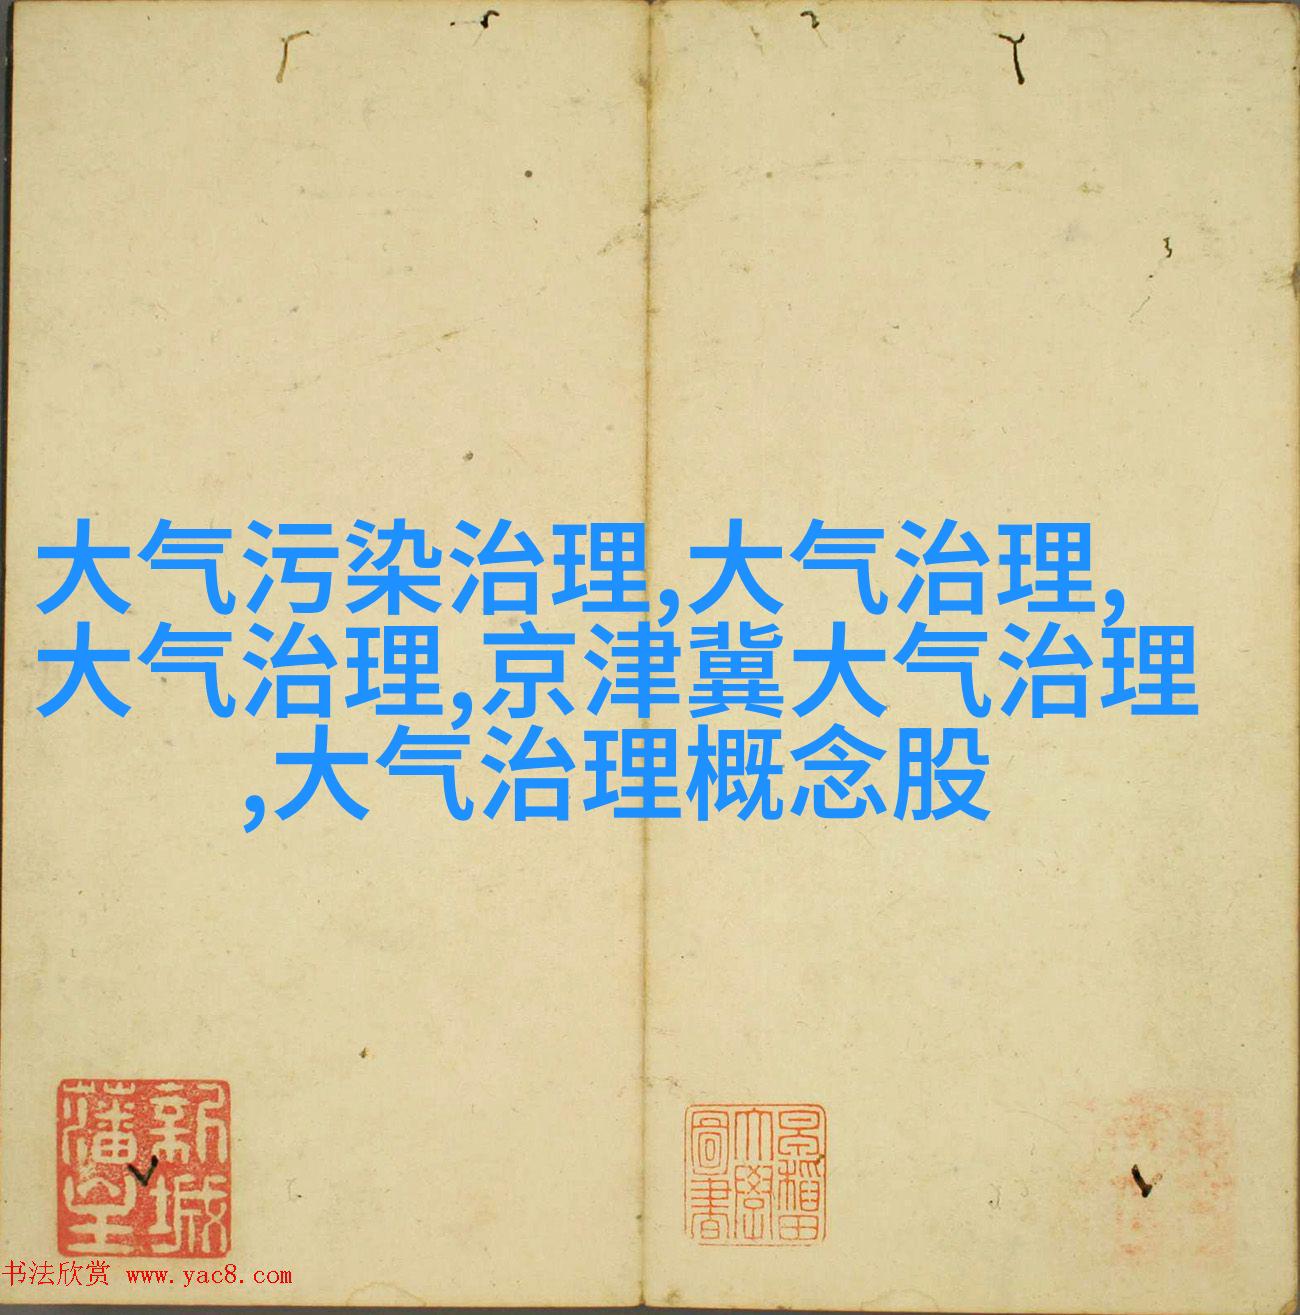 大气污染治理,大气治理,
大气治理,京津冀大气治理
,大气治理概念股
新城
藩室
早稲田
大學
圖書
书法欣赏 www.yac8.com